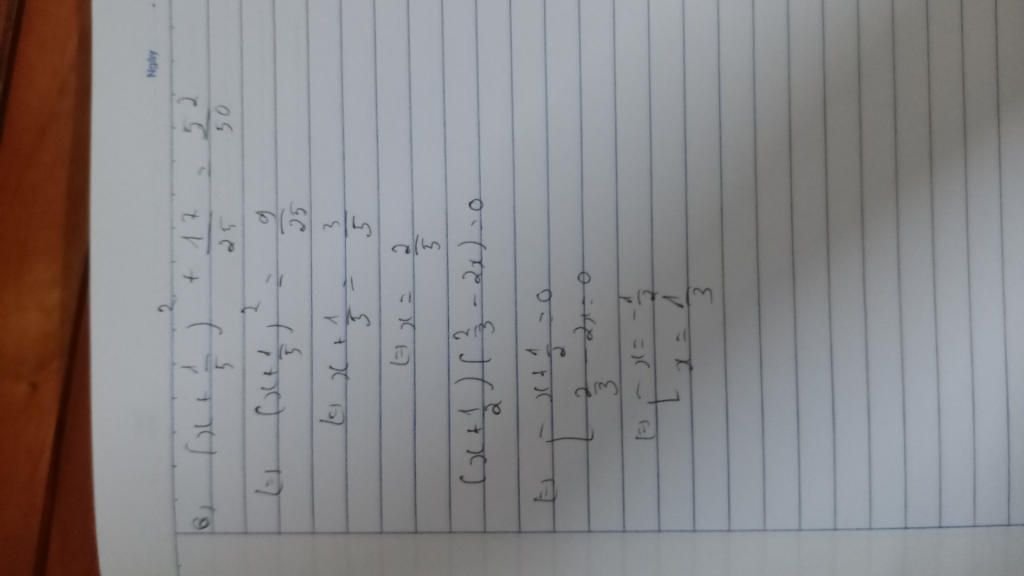 Ngày
a) (x + 1/5)² + 17/25 = 52/50
(=) (x + 1/5)² = 9/25
(=) x + 1/5 = 3/5
(=) x = 2/5
(x + 1/2)(2/3 - 2x) = 0
(=) [ x + 1/2 = 0
2/3 - 2x = 0
(=) [ x = -1/2
x = 1/3